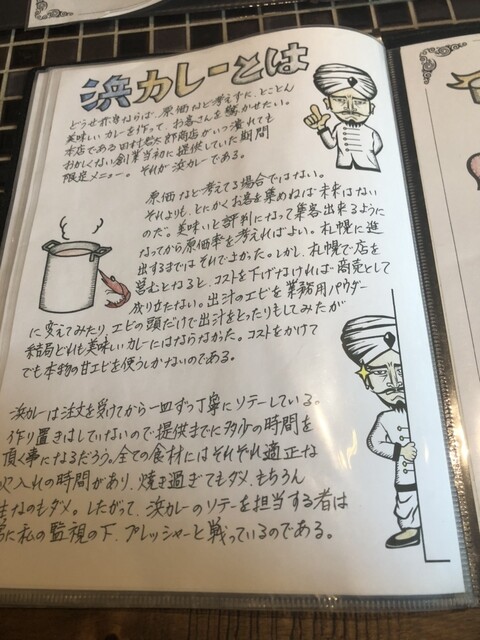 浜カレーとは
どうせ赤字ならば、原価など考えずに、とことん
美味しいカレーを作って、お客さんを驚かせたい。
本店である田村岩太郎商店がいつ潰れても
おかしくない創業当初に提供していた期間
限定メニュー。それが浜カレーである。
原価など考える場合ではない。
それよりも、とにかくお客を集めねば未来はない
のだ。美味いと評判になって集客出来るように
なってから原価率を考えればよい。札幌に進
出するまではそれでよかった。しかし、札幌で店を
営むとなると、コストを下げなければ商売として
成り立たない。出汁のエビを業務用パウダー
に変えてみたり、エビの頭だけで出汁をとったりもしてみたが
結局どれも美味しいカレーにはならなかった。コストをかけて
でも本物の甘エビを使うしかないのである。
浜カレーは注文を受けてから一皿ずつ丁寧にソテーしている。
作り置きはしていないので提供までに多少の時間を
頂く事になるだろう。全ての食材にはそれぞれ適正な
火入れの時間があり、焼き過ぎてもダメ、もちろん
生なのもダメ。したがって、浜カレーのソテーを担当する者は
常に私の監視の下、プレッシャーと戦っているのである。